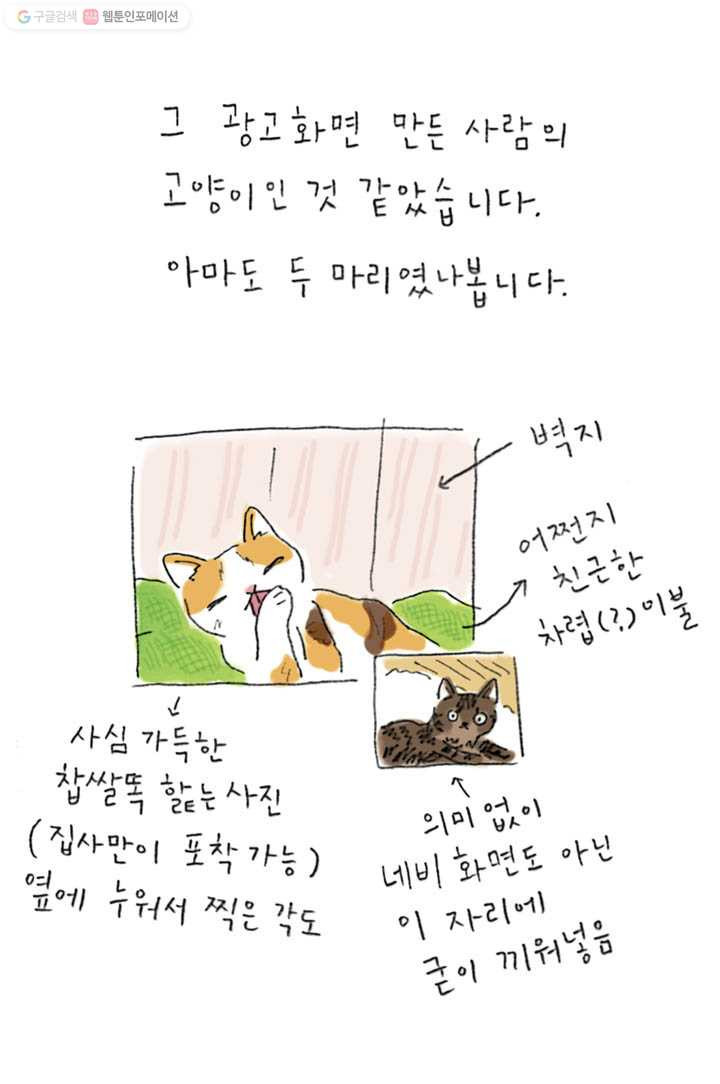 구글검색 웹툰인포메이션
그 광고화면 만든 사람의
고양이인 것 같았습니다.
아마도 두 마리였나봅니다.
벽지
어쩐지
친근한
차렵(?)이불
사심 가득한
찹쌀똑 핥는 사진
(집사만이 포착 가능)
옆에 누워서 찍은 각도
의미 없이
네비 화면도 아닌
이 자리에
굳이 끼워넣음